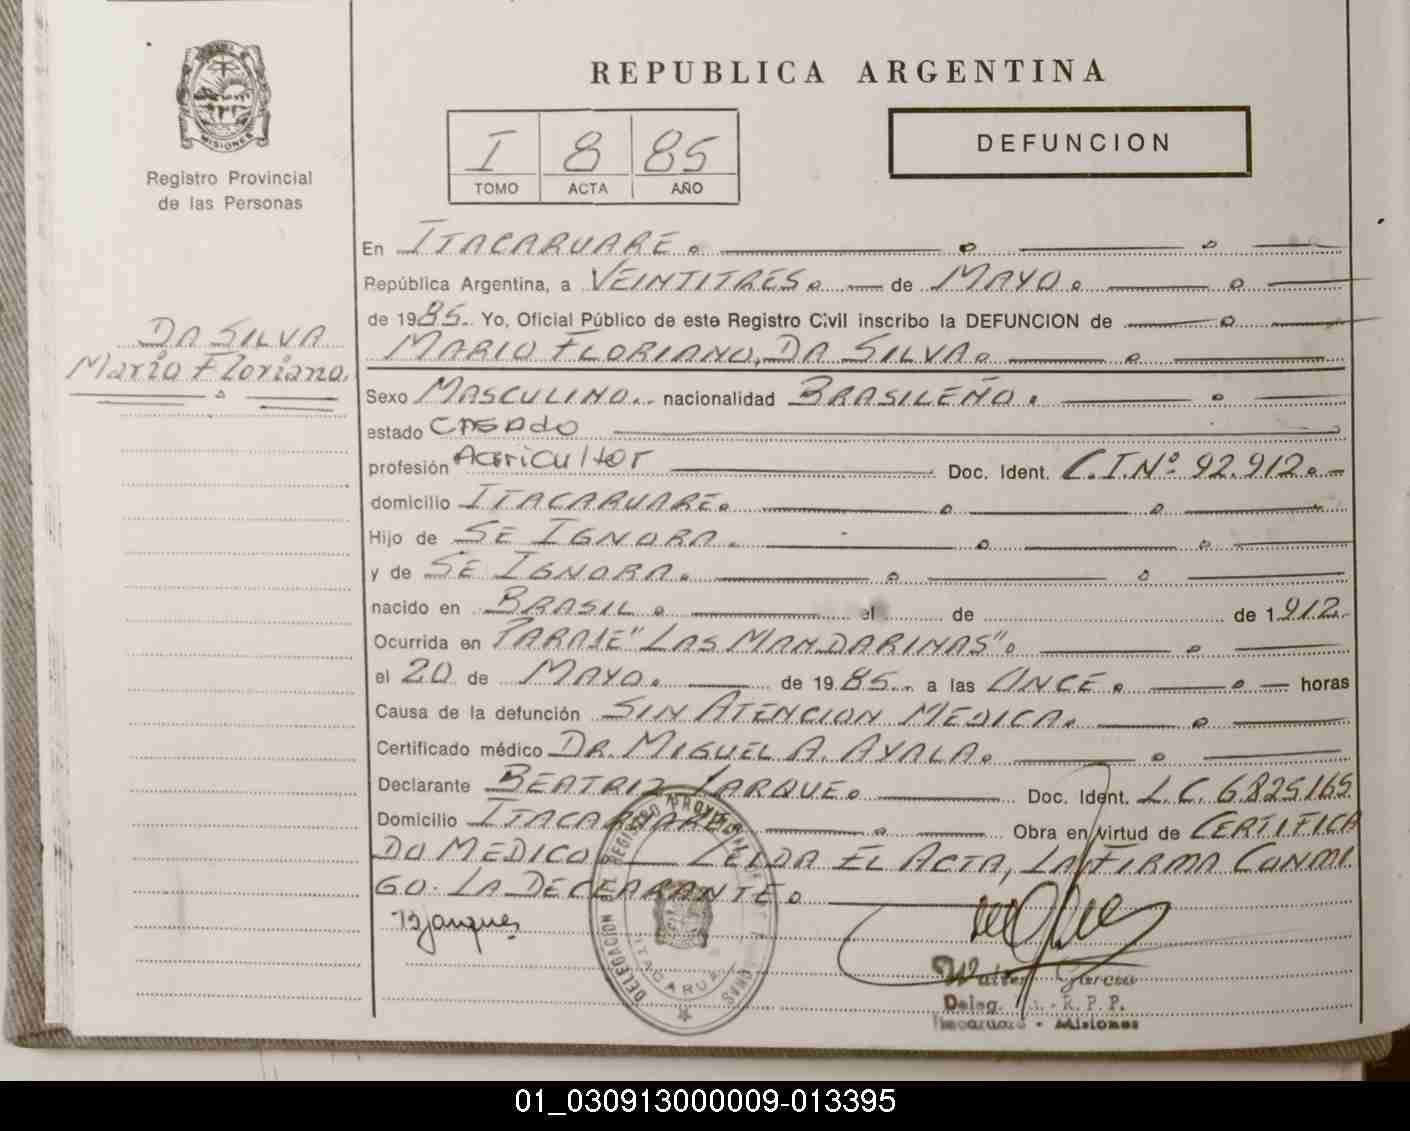 MISIONES
Registro Provincial
de las Personas
DA SILVA
Mario Floriano.
REPUBLICA ARGENTINA
I 8 85
TOMO ACTA AÑO
DEFUNCION
En ITACARUARE.
República Argentina, a VEINTITRES. de MAYO.
de 1985. Yo, Oficial Público de este Registro Civil inscribo la DEFUNCION de
MARIO FLORIANO, DA SILVA.
Sexo MASCULINO. nacionalidad BRASILEÑO.
estado CASADO
profesión Agricultor Doc. Ident. C.I.Nº 92.912.
domicilio ITACARUARE.
Hijo de SE IGNORA.
y de SE IGNORA.
nacido en BRASIL. el de de 1912.
Ocurrida en PARAJE "LAS MANDARINAS".
el 20 de MAYO. de 1985. a las ONCE. horas
Causa de la defunción SIN ATENCION MEDICA.
Certificado médico DR. MIGUEL A. AYALA.
Declarante BEATRIZ JARQUE. Doc. Ident. L.C. 6825165
Domicilio ITACARUARE. Obra en virtud de CERTIFICA
DO MEDICO LEIDA EL ACTA, LA FIRMA CONMI
GO. LA DECLARANTE.
BJarques
DELEGACION DEL REGISTRO PROVINCIAL DE
ITACARUARE
Walter Garcia
Deleg. R.P.P.
Itacaruaré - Misiones
01_030913000009-013395